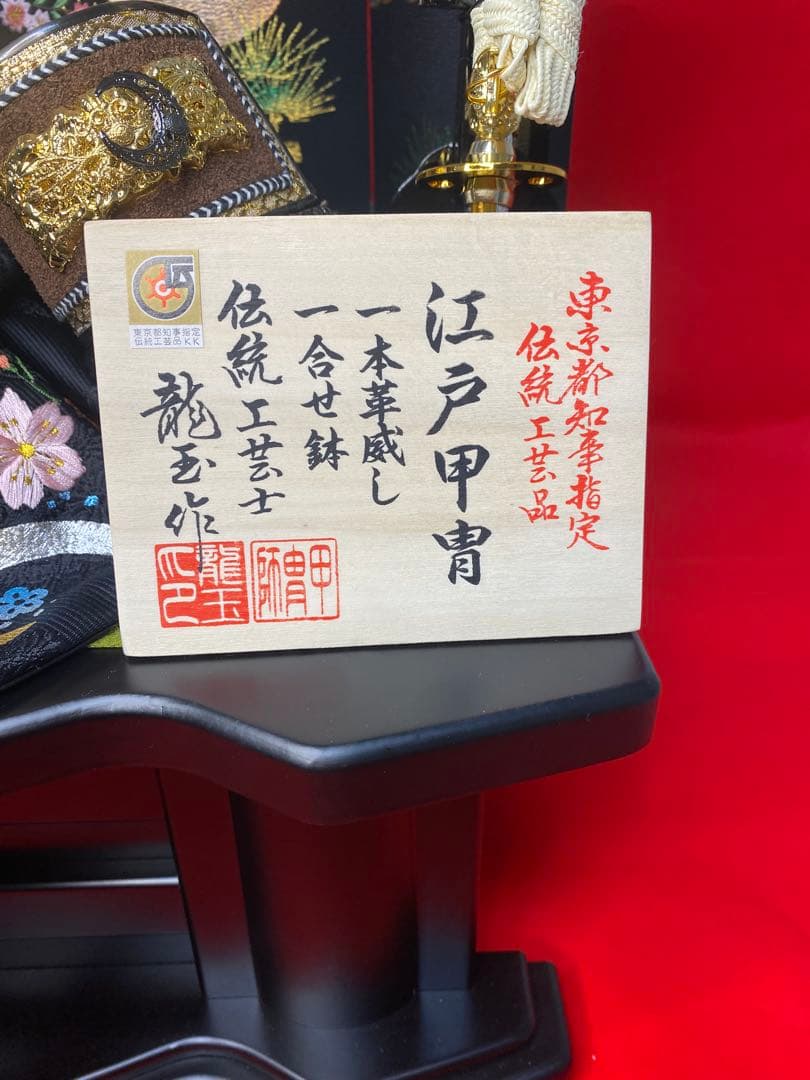 東京都知事指定
伝統工芸品
江戸甲冑
一本革威し
一合せ鉢
伝統工芸士
龍玉作
東京都知事指定
伝統工芸品KK
甲冑師
龍玉之印